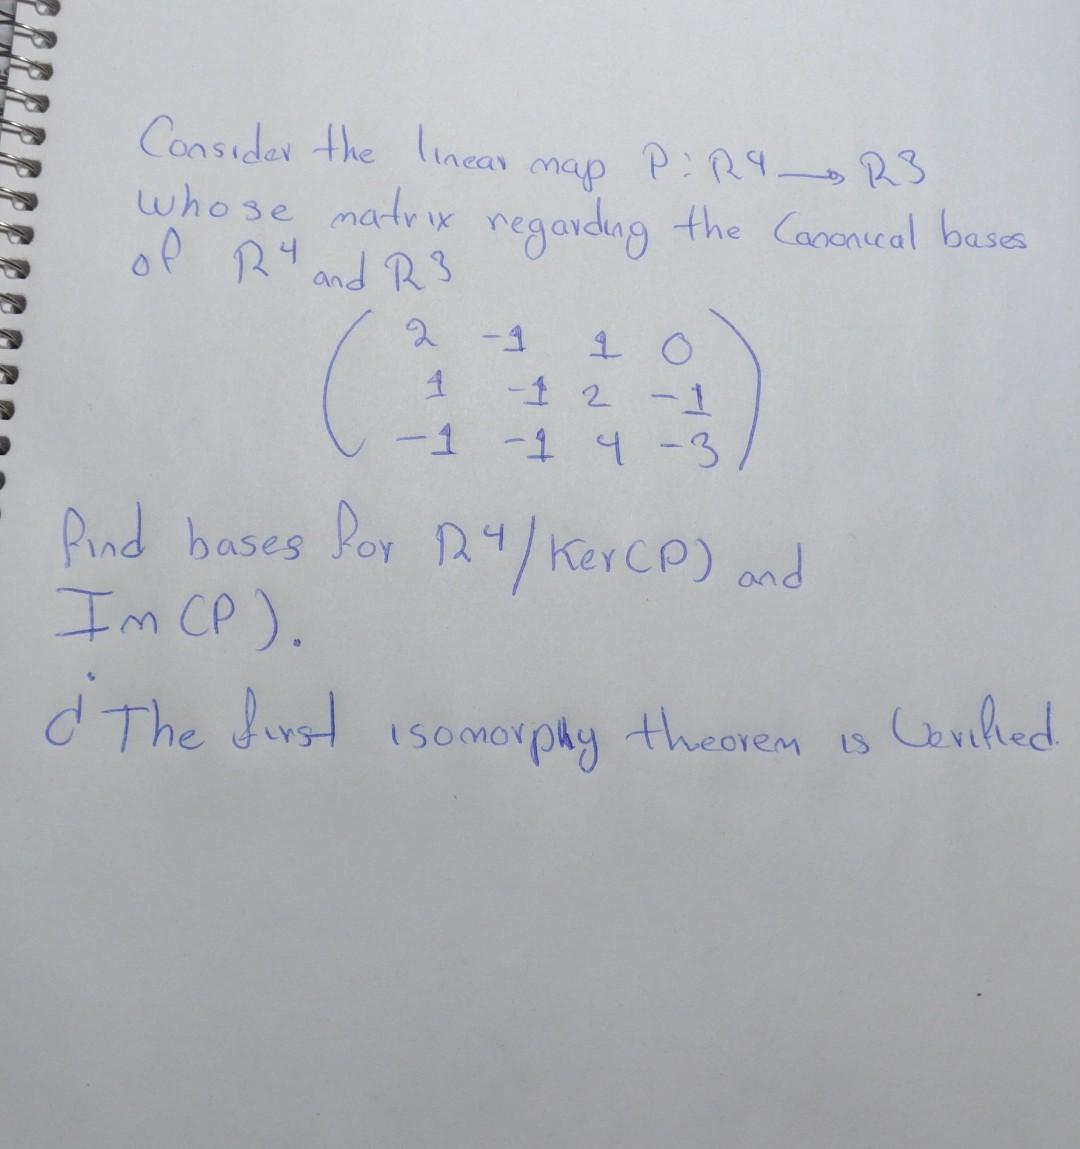 Consider the linear map P: R4 → R3
whose matrix regarding the Canonical bases
of R4 and R3
2 -1 1 0
1 -1 2 -1
-1 -1 4 -3
find bases for R4/Ker(P) and
Im (P).
¿ The first isomorphy theorem is Verified.